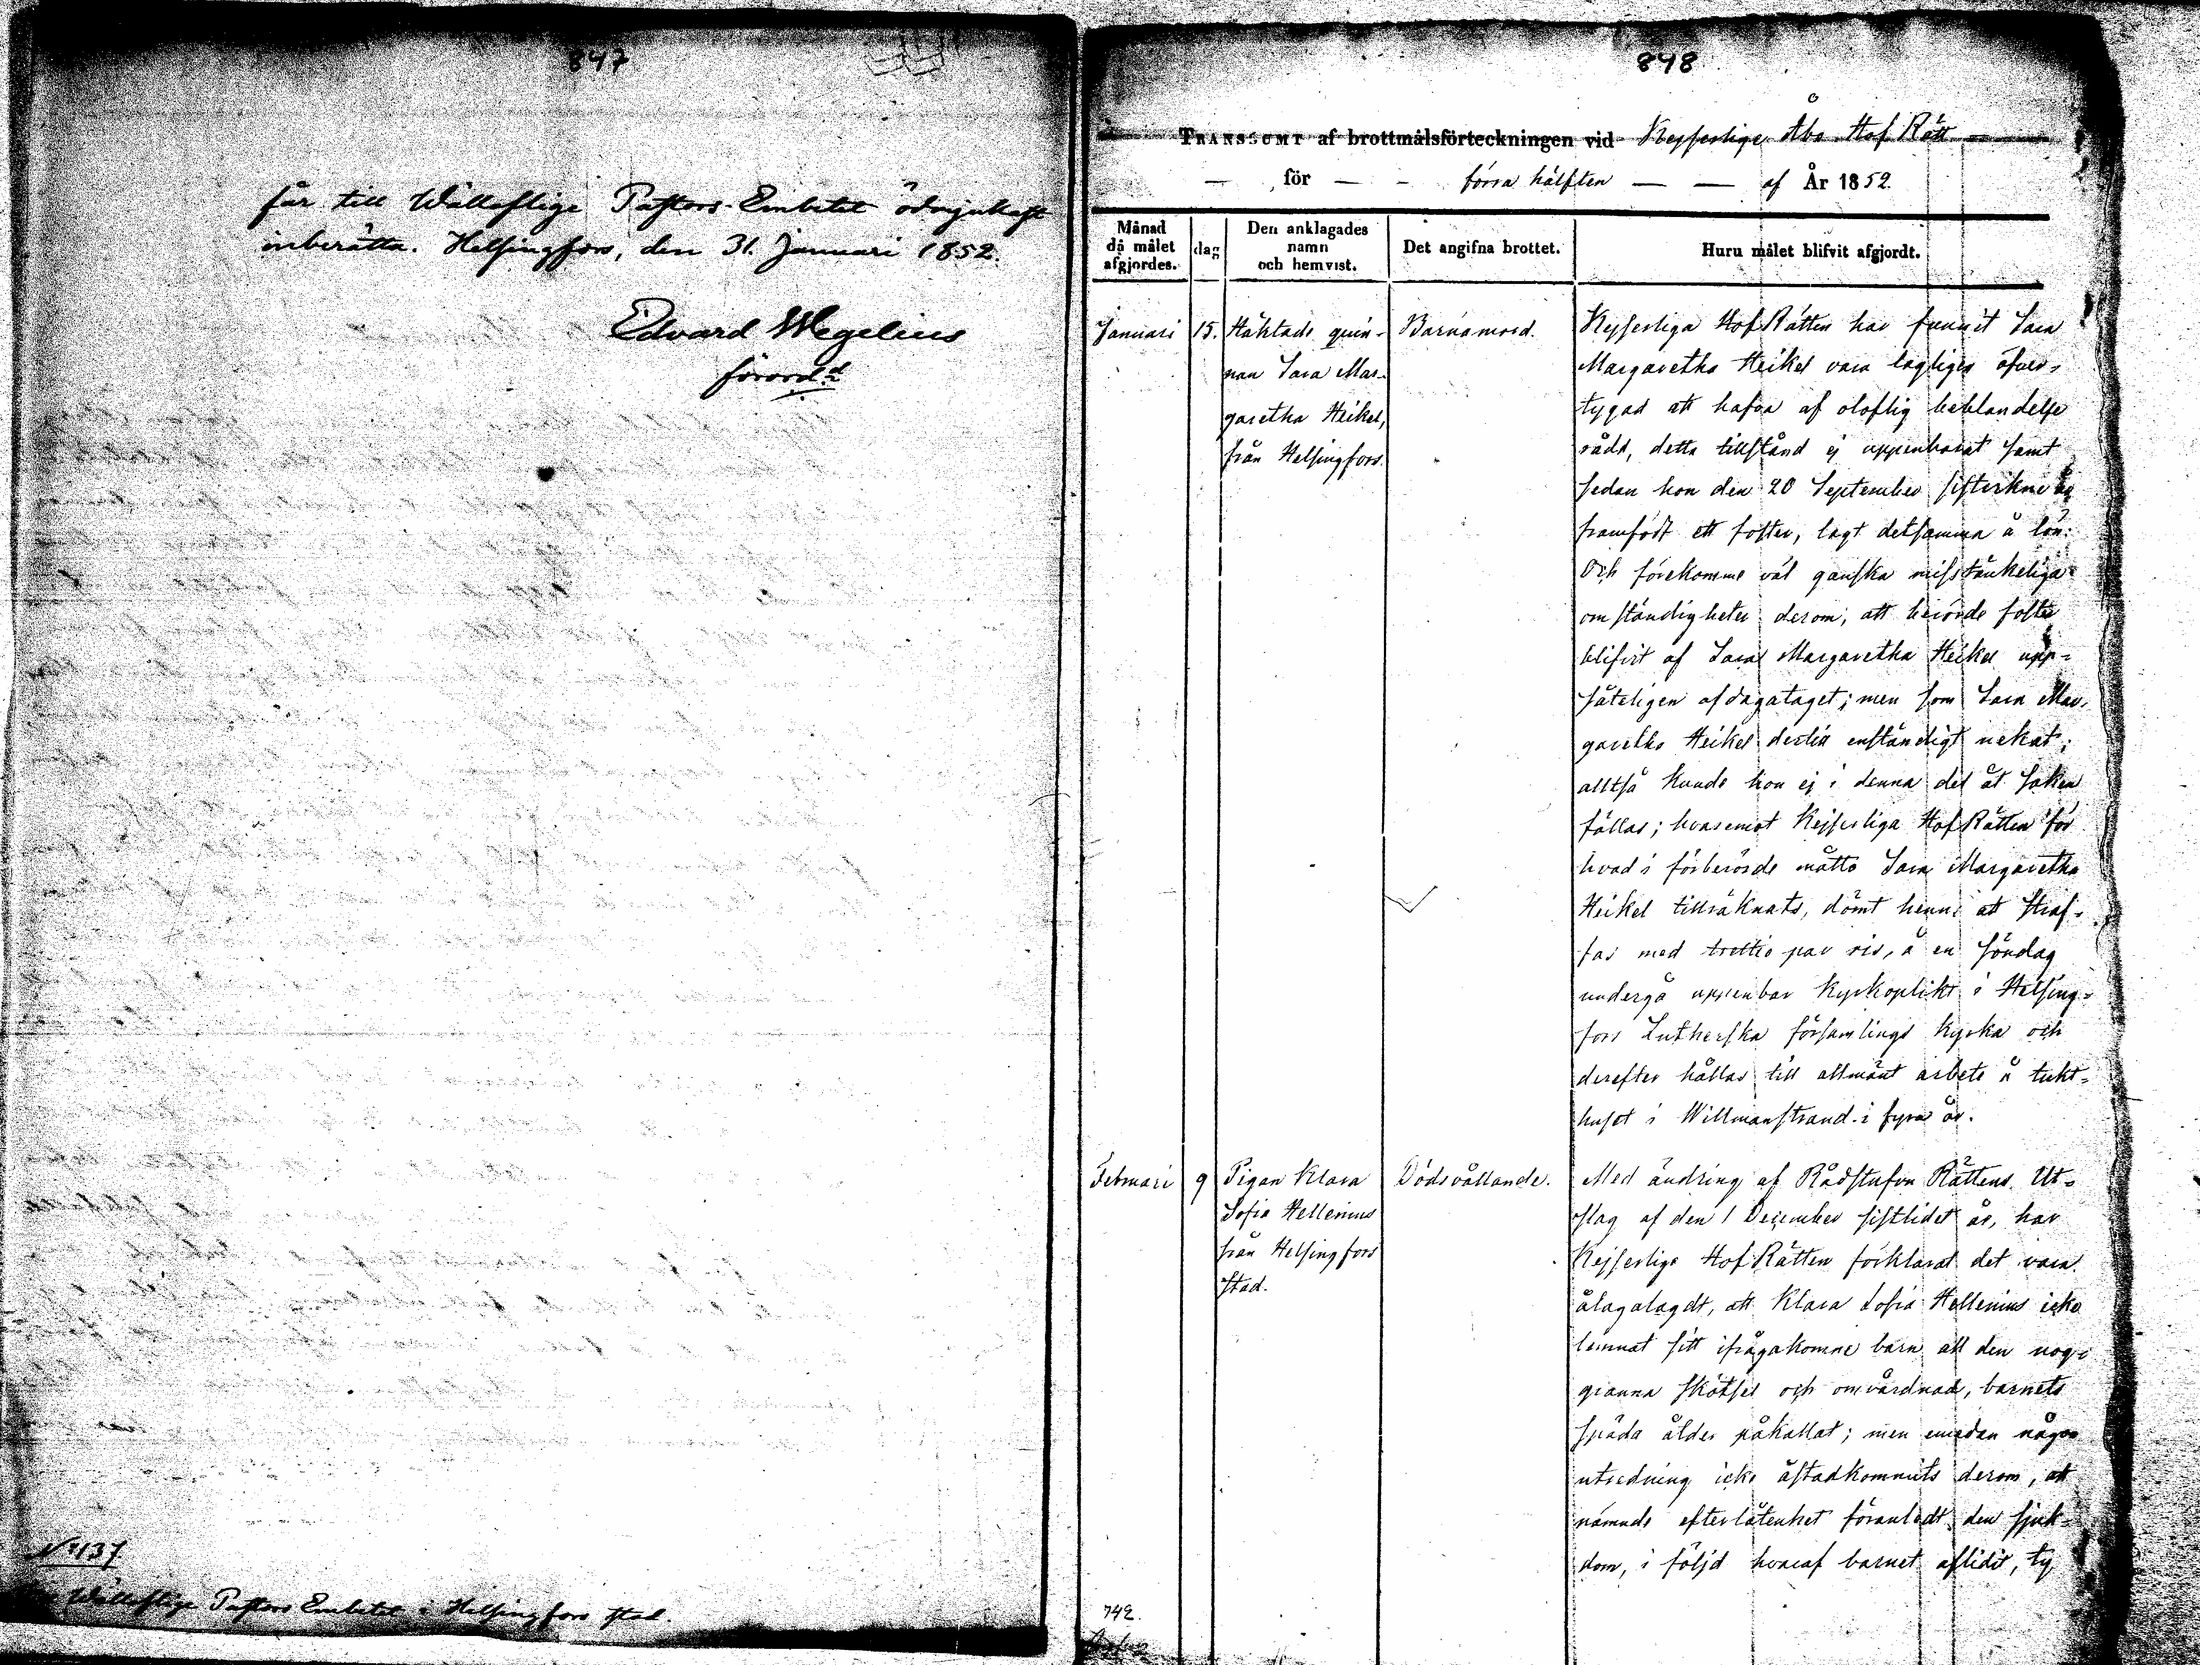 847
får till Wällofliga Pastors-Embetet ödmjukast
inberätta. Helsingfors, den 31. Januari 1852.
Edvard Wegelius
förord.d
No 137
Wällofliga Pastors Embetet i Helsingfors stad.
848
TRANSSUMT af brottmålsförteckningen vid Kejserliga Åbo Hof Rätt
för förra hälften af År 1852.
Månad då målet afgjordes.
dag
Den anklagades namn och hemvist.
Det angifna brottet.
Huru målet blifvit afgjordt.
Januari 15. Häktade quin-
nan Sara Mar-
garetha Heikel,
från Helsingfors.
Barnamord.
Kejserliga Hof Rätten har funnit Sara
Margaretha Heikel vara lagligen öfver-
tygad att hafva af oloflig beblandelse
rådd, detta tillstånd ej uppenbarat samt
sedan hon den 20 September sistvikne år
framfödt ett foster, lagt detsamma å lön:
Och förekomme väl ganska misstänkeliga
omständigheter derom, att berörde foster
blifvit af Sara Margaretha Heikel upp-
såteligen afdagataget; men som Sara Mar-
garetha Heikel dertill enständigt nekat;
alltså kunde hon ej i denna del åt saken
fällas; hvaremot Kejserliga Hof Rätten för
hvad i förberörde måtto Sara Margaretha
Heikel tillräknats, dömt henne att straf-
fas med trettio par ris, å en söndag
undergå uppenbar kyrkoplikt i Helsing-
fors Lutherska församlings kyrka och
derefter hållas till allmänt arbete å tukt-
huset i Willmanstrand i fyra år.
Februari 9 Pigan Klara
Sofia Hellenius
från Helsingfors
stad.
Dödsvållande.
Med ändring af Rådstufvu Rättens Ut-
slag af den 1 December sistlidet år, har
Kejserliga Hof Rätten förklarat det vara
ålagalagdt, att Klara Sofia Hellenius icke
lemnat sitt ifrågakomne barn all den nog-
granna skötsel och omvårdnad, barnets
späda ålder påkallat; men emedan någon
utredning icke åstadkommits derom, att
nämnde efterlåtenhet föranledt den sjuk-
dom, i följd hvaraf barnet aflidit, ty
742.